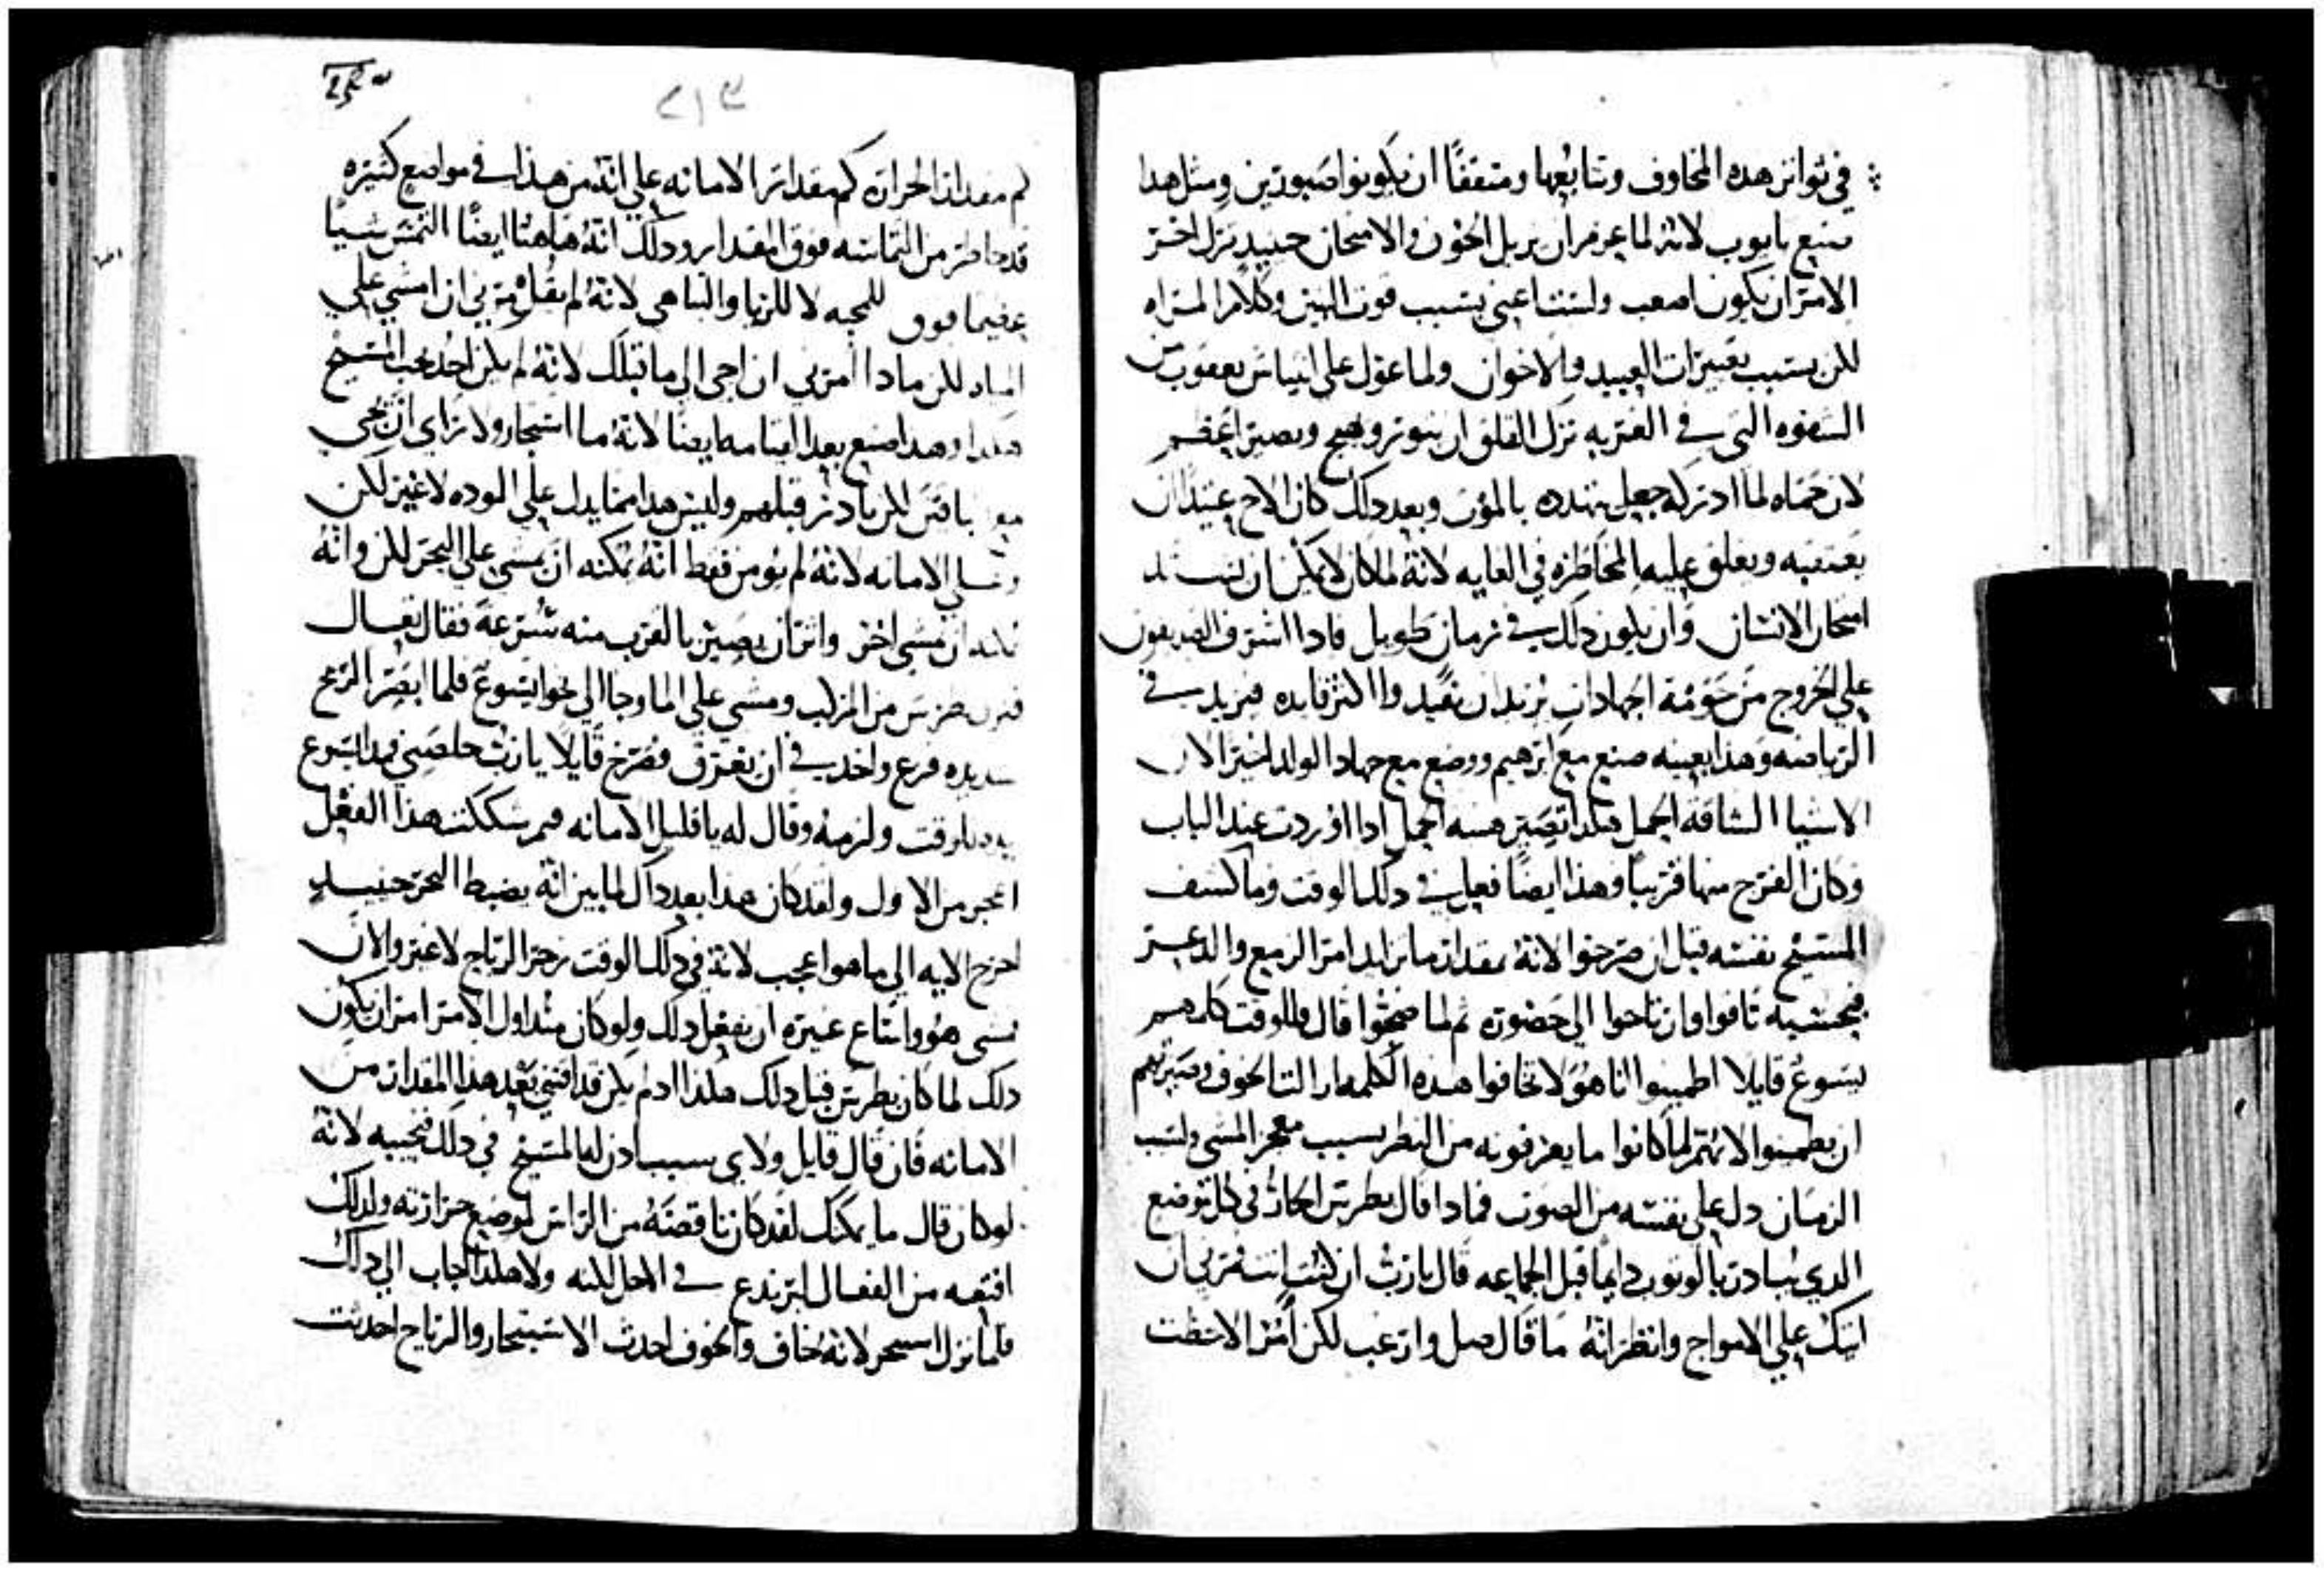 في تواتر هده المخاوف وتتابعها ومثقفًا ان يكونوا صبورين ومثل هدا
صنع بايوب لانه لما عزم ان يزيل الحزن والامتحان حينيد ترك اخر
الامر ان يكون اصعب ولست اعني بسبب موت البنين وكلام المراه
لكن بسبب تعييرات العبيد والاخوان ولما عول على انتياش يعقوب من
الشقوه التي في الغربه ترك القلق ان يتوتر ويهيج ويصير اعظم
لان حماه لما ادركه جعل يتهدده بالموت وبعد دلك كان الاخ عتيدًا ان
يعتقبه ويعلق عليه المخاطره في الغايه لانه لما كان لا يمكن ان
امتحان الانسان وان يكون دلك في زمان طويل فادا اشرف الصديقون
على الخروج من حومة الجهادات يريد ان يفيدوا اكثر فايده فيزيد في
الرياضه وهذا بعينه صنع مع ابرهيم ووضع مع جهاد الولد اخير الان
الاشيا الشاقة الحمل هكدا تصير هينه الحمل ادا اوردت عند الباب
وكان الفرح منها قريبًا وهذا ايضًا فعل في دلك الوقت وما كشف
المسيح نفسه قبل ان صرخوا لانه بمقدار ما تزايد امر الزمع والدعر
فبحسبه تاقوا وارتاحوا الى حضوره ثم لما ضجوا قال وللوقت كلمهم
يسوع قايلا اطمينوا انا هو لا تخافوا هده الكلمه ازالت الخوف وصيرتهم
ان يطمنوا لانهم لما كانوا ما يعرفونه من النظر بسبب معجز المشى ولسبب
الزمان دل على نفسه من الصوت فمادا قال بطرس الحار في كل موضع
الدي يبادر بالوثوب دايمًا قبل الجماعه قال يارب ان كنت انت مرني ان
اتيك على الامواج وانظر انه ما قال صل وارغب لكن امر الاحظت
٢١٣
كم مقدار الحراره كم مقدار الامانه على انه من هذا في مواضع كثيره
قد خاطر من التماسه فوق المقدار ودلك انه هاهنا ايضًا التمس شيًا
عظيما فوق للمحبه لا للريا والتباهي لانه لم يقل مرني ان امشي على
المياه لكن مادا امرني ان اجي الى ما قبلك لانه لم يكن احد يحب المسيح
هكدا وهدا صنع بعد القيامه ايضًا لانه ما استجاز ولا راى ان يجي
مع باقين لكن بادر قبلهم وليس هدا مما يدل على الوده لا غير لكن
وعلى الامانه لانه لم يومن فقط انه يمكنه ان يمشي على البحر لكن وانه
ان يمشي اخر واثر ان يصير بالقرب منه بسرعة فقال تعال
فنزل بطرس من المركب ومشي على الما وجا الى نحو ايسوع فلما ابصر الريح
شديده فزع واخد في ان يغرق فصرخ قايلًا يا رب خلصني فمد ايسوع
يده للوقت ولزمه وقال له يا قليل الامانه فيم شككت هذا الفعل
اعجب من الاول ولقد كان هدا بعد داك لما بين انه يضبط البحر حينيد
اخرج الايه الى ما هو اعجب لانه في دلك الوقت زجر الرياح لا غير والان
مشى هو واشاع غيره ان يفعل دلك ولو كان مند اول الامر امر ان يكون
دلك لما كان بطرس قبل دلك هكذا اد لم يكن قد اقتني بعد هذا المقدار من
الامانه فان قال قايل ولاي سبب ادن له المسيح في دلك فنجيبه لانه
لو كان قال ما يمكنك لقد كان ناقصة من الراس لموضع حرارته ولدلك
اقنعه من الفعال ليرتدع في الاجل لكنه ولا هكذا اجاب الى دلك
فلما نزل لانه خاف والخوف احدث الاستبحار والرياح احدثت